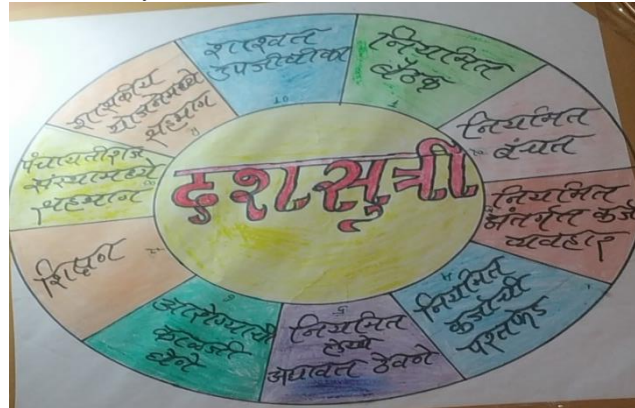 दशसूत्री
नियमित
बैठक
नियमित
बचत
नियमित
अंतर्गत कर्ज
व्यवहार
नियमित
कर्जाची
परतफेड
नियमित
लेखे
अद्यावत ठेवने
आरोग्याची
काळजी
घेने
शिक्षन
पंचायतीराज
संस्थामध्ये
सहभाग
शासकीय
योजनेमध्ये
सहभाग
शाश्वत
उपजीवीका